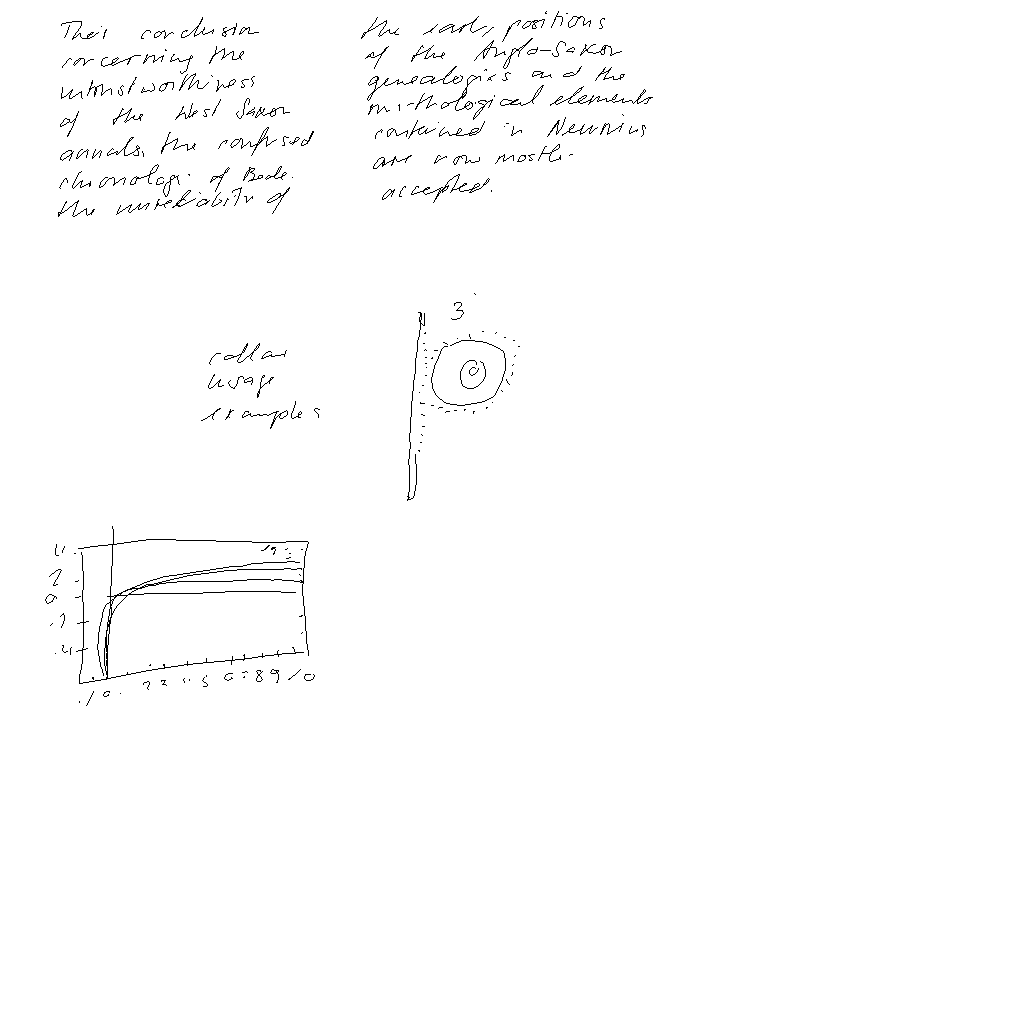 Their conclusion
concerning the
untrustworthiness
of the West Saxon
annals, the confused
chronology of Bede.
the unreliability of
the early positions
of the Anglo-Saxon
genealogies and the
mythological elements
contained in Nennius
are now mostly
accepted.
3
collar
usage
examples
4
2
0
-2
-4
-1 0 2 3 4 5 6 7 8 9 10